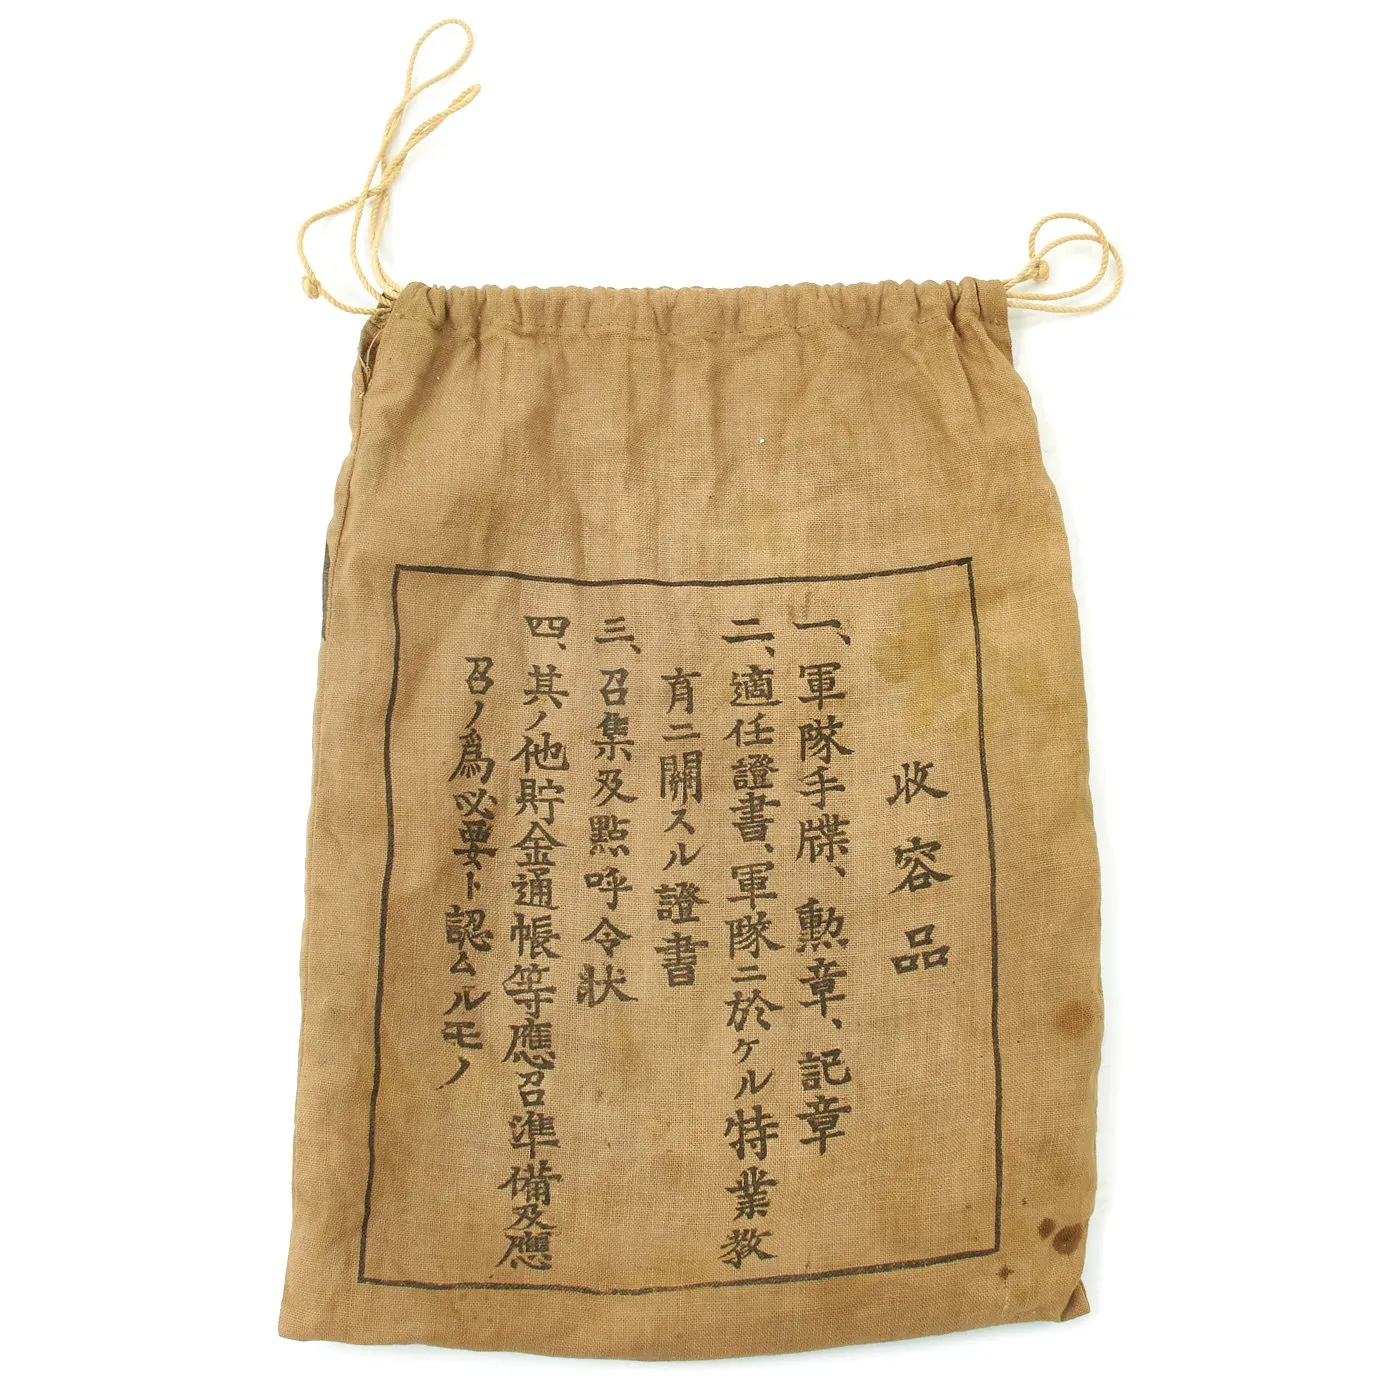 收容品
一、軍隊手牒、勲章、記章
二、適任證書、軍隊ニ於ケル特業教
育ニ關スル證書
三、召集及點呼令狀
四、其ノ他貯金通帳等應召準備及應
召ノ爲必要ト認ムルモノ